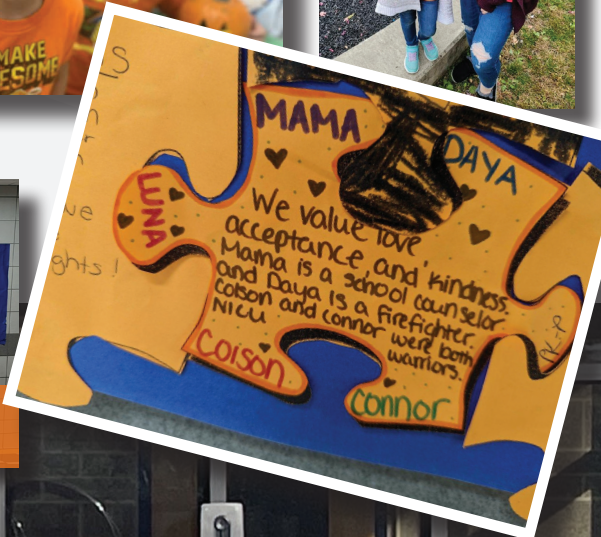 MAKE
ESOME
S
ve
ghts!
MAMA
DAYA
LUNA
We value love
acceptance, and kindness.
Mama is a school counselor
and Daya is a firefighter.
Colson and Connor were both
NICU warriors.
Colson
Connor
PK-P